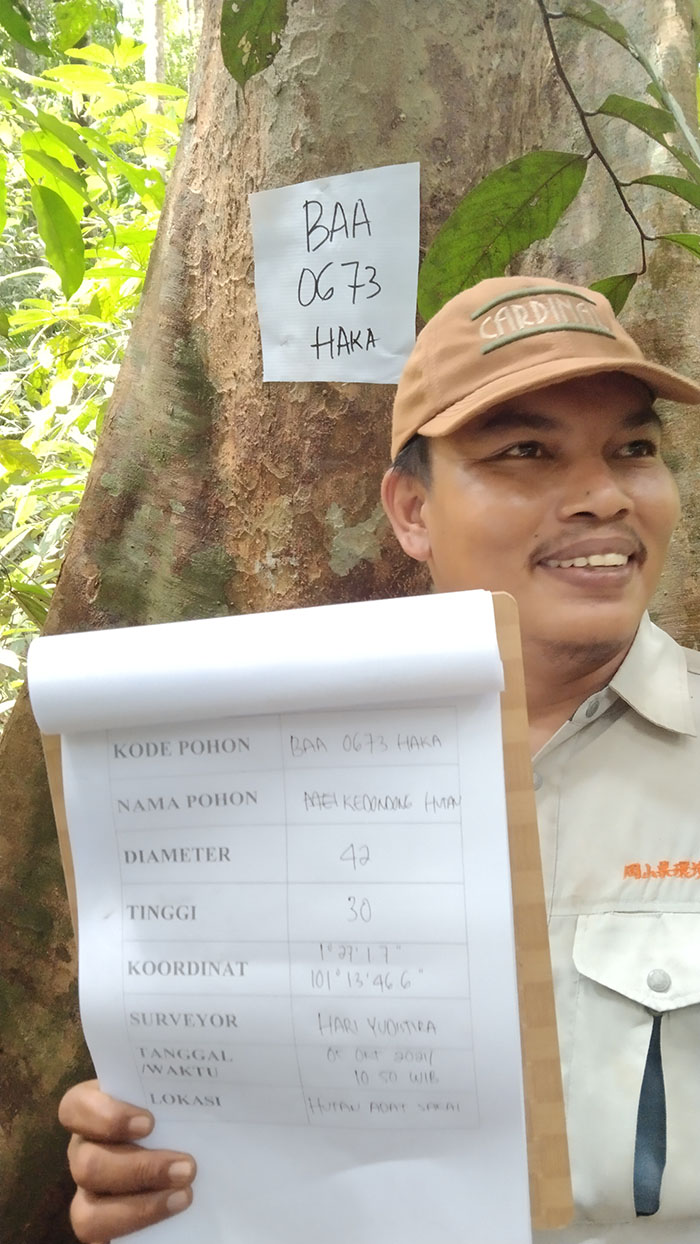 BAA
0673
HAKA
CARDINAL
KODE POHON BAA 0673 HAKA
NAMA POHON KEDONDONG HUTAN
DIAMETER 42
TINGGI 30
KOORDINAT 1°27'1 7"
101°13'46 6"
SURVEYOR HARI YUDISTIRA
TANGGAL 05 OKT 2024
/WAKTU 10 50 WIB
LOKASI HUTAN ADAT SAKAI